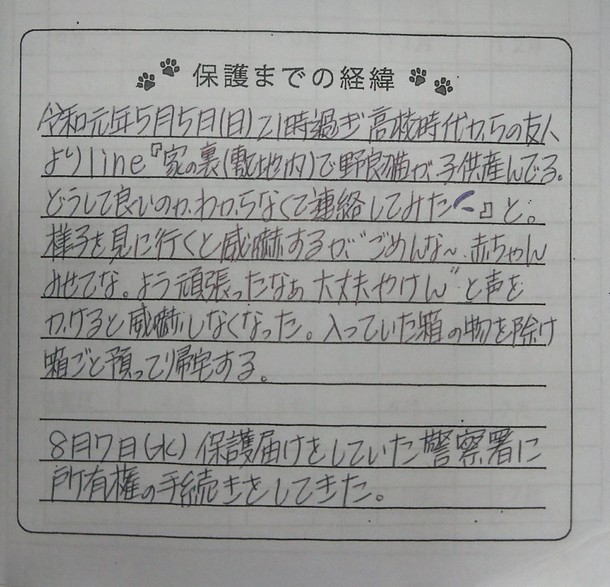 保護までの経緯
令和元年5月5日(日)21時過ぎ高校時代からの友人
よりline『家の裏(敷地内)で野良猫が子供産んでる。
どうして良いのかわからなくて連絡してみた』と。
様子を見に行くと威嚇するが"ごめんな〜赤ちゃん
みせてな。よう頑張ったなぁ大丈夫やけん"と声を
かけると威嚇しなくなった。入っていた箱の物を除け
箱ごと預って帰宅する。
8月7日(水)保護届けをしていた警察署に
所有権の手続きをしてきた。